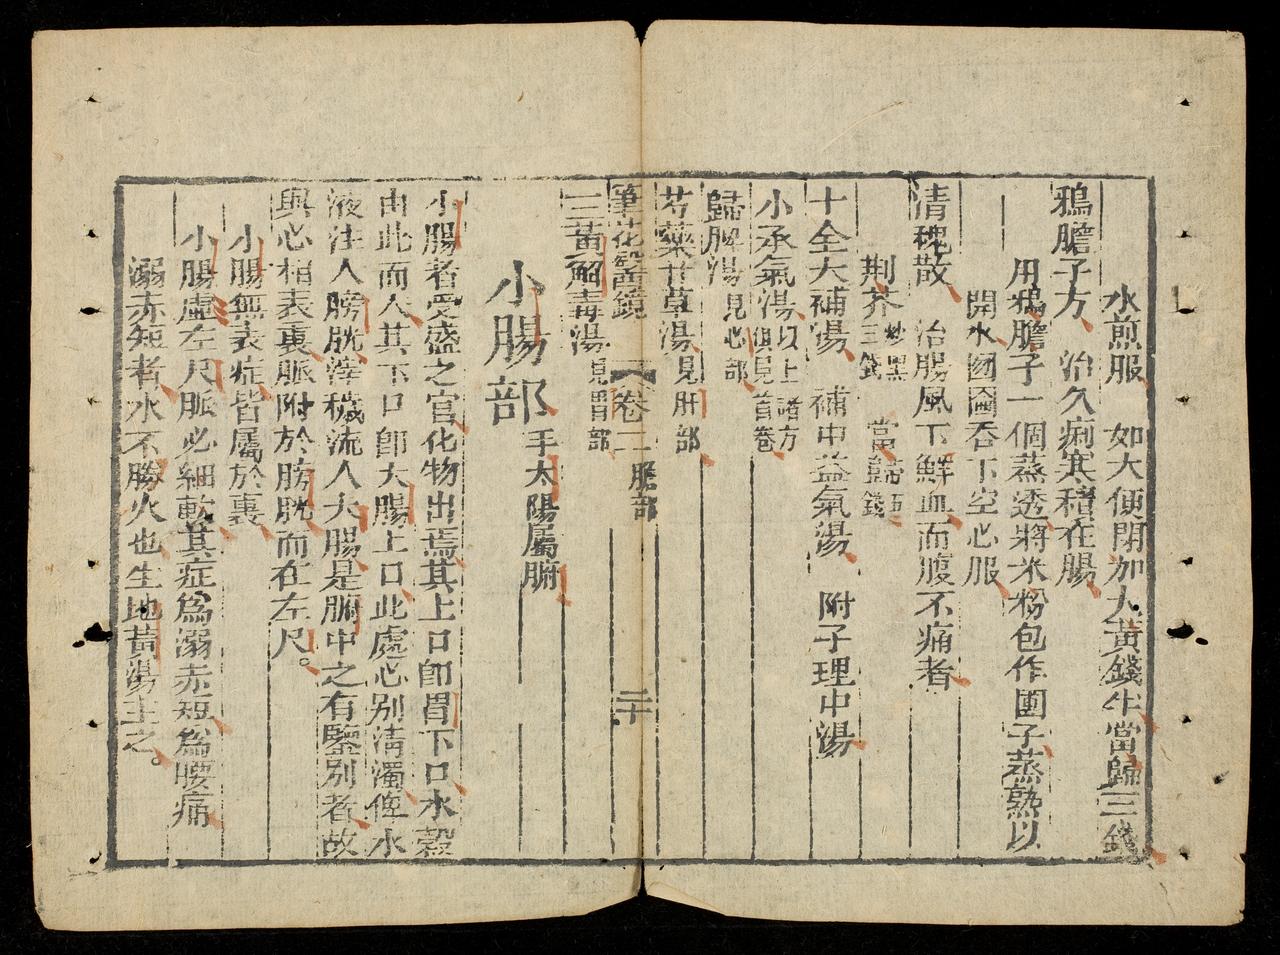 水煎服　如大便閉加大黃錢半當歸三錢
鴉膽子方　治久痢寒積在腸
用鴉膽子一個蒸透將米粉包作團子蒸熟以
開水囫圇吞下空心服
清槐散　治腸風下鮮血而腹不痛者
荆芥三錢炒黑　當歸五錢
十全大補湯　補中益氣湯　附子理中湯
小承氣湯以上諸方俱見首卷
歸脾湯見心部
芍藥甘草湯見肝部
筆花醫鏡　卷二　膽部　二十
三黃解毒湯見胃部
小腸部手太陽屬腑
小腸者受盛之官化物出焉其上口卽胃下口水穀
由此而入其下口卽大腸上口此處心別清濁俾水
液注入膀胱滓穢流入大腸是腑中之有鑒別者故
與心相表裏脈附於膀胱而在左尺。
小腸無表症皆屬於裏
小腸虛左尺脈必細軟其症爲溺赤短爲腰痛
溺赤短者水不勝火也生地黃湯主之。